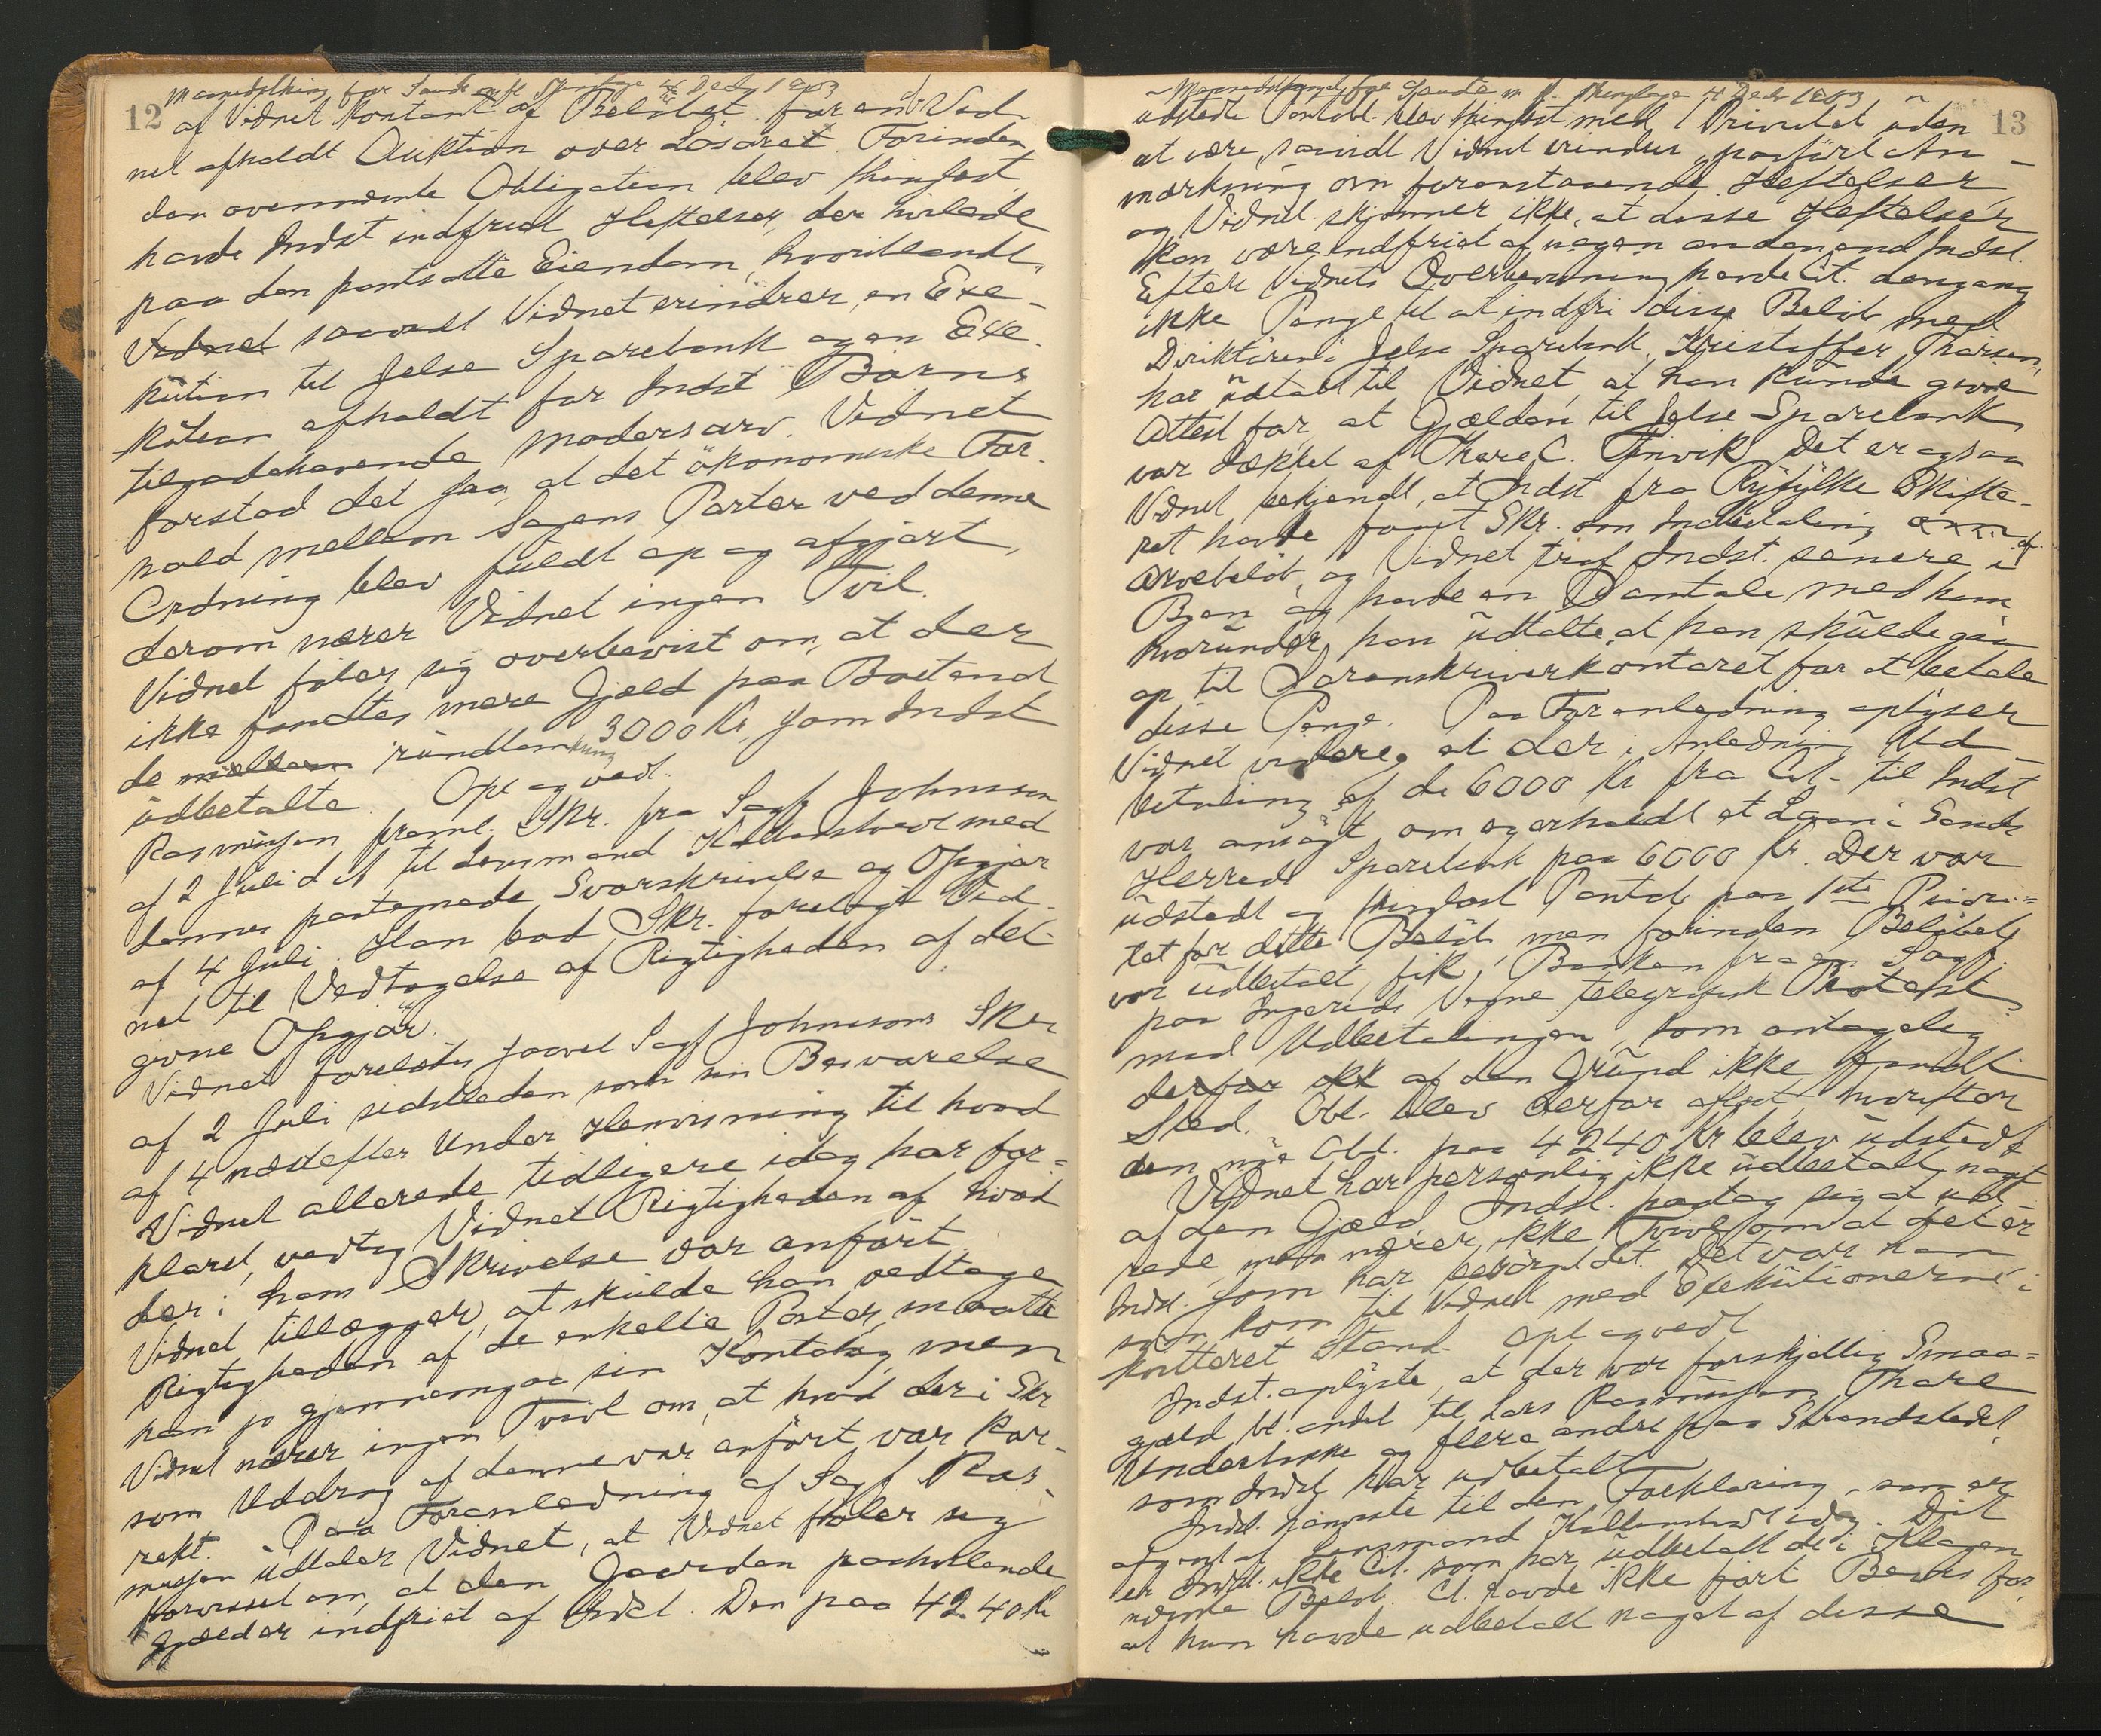 12
Maanedsthing for Sande Tinglag 4 Decb 1903
af Vidnet kontant af Beløbet før end Vid-
net afholdt Auktion over Løsøret. Forinden
den ovennævnte Obligation blev thinglæst
havde Indst indfriet Heftelser, der hvilede
paa den pantsatte Eiendom, hvoriblandt,
Vidnet saavidt Vidnet erindrer, en Exe-
kution til Jelse Sparebank og en Exe-
kution afholdt for Indst Børns
tilgodehavende Modersarv. Vidnet
forstod det saa, at det økonomiske For-
hold mellem Sagens Parter ved denne
Ordning blev fuldt op og afgjørt,
derom nærer Vidnet ingen Tvil.
Vidnet føler sig overbevist om, at der
ikke fandtes mere Gjæld paa Bostand
de mellem rundtom kring 3000 Kr, som Indst
udbetalte. Opl og vedt.
Rasmussen freml. Skr. fra Sagf Johnsson
af 2 Juli d A til Lensmand Kollanstvedt med
dennes paategnede Svarskrivelse og Opgjør
af 4 Juli. Han bad Skr. forelagt Vid-
net til Vedtagelse af Rigtigheden af det
givne Opgjør.
Vidnet forelæstes saavel Sagf Johnssons Skr
af 2 Juli sidstleden som sin Besvarelse
af 4 næstefter. Under Henvisning til hvad
Vidnet allerede tidligere idag har for-
klaret, vedtog Vidnet Rigtigheden af hvad
der i hans Skrivelse var anført
Vidnet tillægger, at skulde han vedtage
Rigtigheden af de enkelte Poster, maatte
han jo gjennemgaa sin Kontobog, men
Vidnet nærer ingen Tvivl om, at hvad der i Skr
som Uddrag af denne var anført, var kor-
rekt. Paa Foranledning af Sagf Ras-
mussen udtaler Vidnet, at Vidnet føler sig
forvisset om, at den Gaarden paahvilende
Gjæld er indfriet af Indst. Den paa 4240 Kr
13
Maanedsthing for Sande Tinglag 4 Decb 1903
udstedte Pantobl. blev thinglæst med 1 Prioritet uden
at være, saavidt Vidnet erindrer, paaført An-
mærkning om foranstaaende Heftelser,
og Vidnet skjønner ikke, at disse Heftelser
kan være indfriet af nogen anden end Indst.
Efter Vidnets Overbevisning havde Cit. dengang
ikke Penge til at indfri disse Beløb med
Direktøren i Jelse Sparebank, Kristoffer Tharsen,
har udtalt til Vidnet, at han kunde give
Attest for, at Gjælden til Jelse Sparebank
var dækket af Thore C. Finvik. Det er ogsaa
Vidnet bekjendt, at Indst fra Ryfylke Skifte-
ret havde faaet Skr. om Indbetaling af
Arvebeløb, og Vidnet traf Indst. senere i
Byen og havde en Samtale med ham
hvorunder han udtalte, at han skulde gaa
op til Sorenskriverkontoret for at betale
disse Penge. Paa Foranledning oplyser
Vidnet videre, at der i Anledning Ud-
betaling af de 6000 Kr fra Cit. til Indst
var ansøgt om og erholdt et Laan i Sande
Herreds Sparebank paa 6000 Kr. Der var
udstedt og thinglæst Pantobl paa 1ste Priori-
tet for dette Beløb, men forinden Beløbet
var udbetalt, fik Banken fra en Sagf.
paa Ingerids Vegne telegrafisk Protest
mod Udbetalingen, som antagelig
derfor ikk af den Grund ikke fandt
Sted. Obl. blev derfor aflyst, hvorefter
den nye Obl. paa 4240 Kr blev udstedt
Vidnet har personlig ikke udbetalt noget
af den Gjæld, Indst. paatog sig at ud-
rede, men nærer ikke Tvivl om at det er
Indst. som har besørget det. Det var han
som kom til Vidnet med Exekutionerne i
kvitteret Stand. Opl og vedt
Indst. oplyste, at der var forskjellig Smaa-
gjæld bl. andet til Lars Rasmussen, Thore
Underbakke og flere andre paa Strandstedet,
som Indst har udbetalt
Indst. henviste til den Forklaring, som er
afgivet af Lensmand Kollanstvedt idag. Det
er Indst. ikke Cit. som har udbetalt de i Klagen
nævnte Beløb. Cit. havde ikke ført Bevis for,
at hun havde udbetalt noget af disse